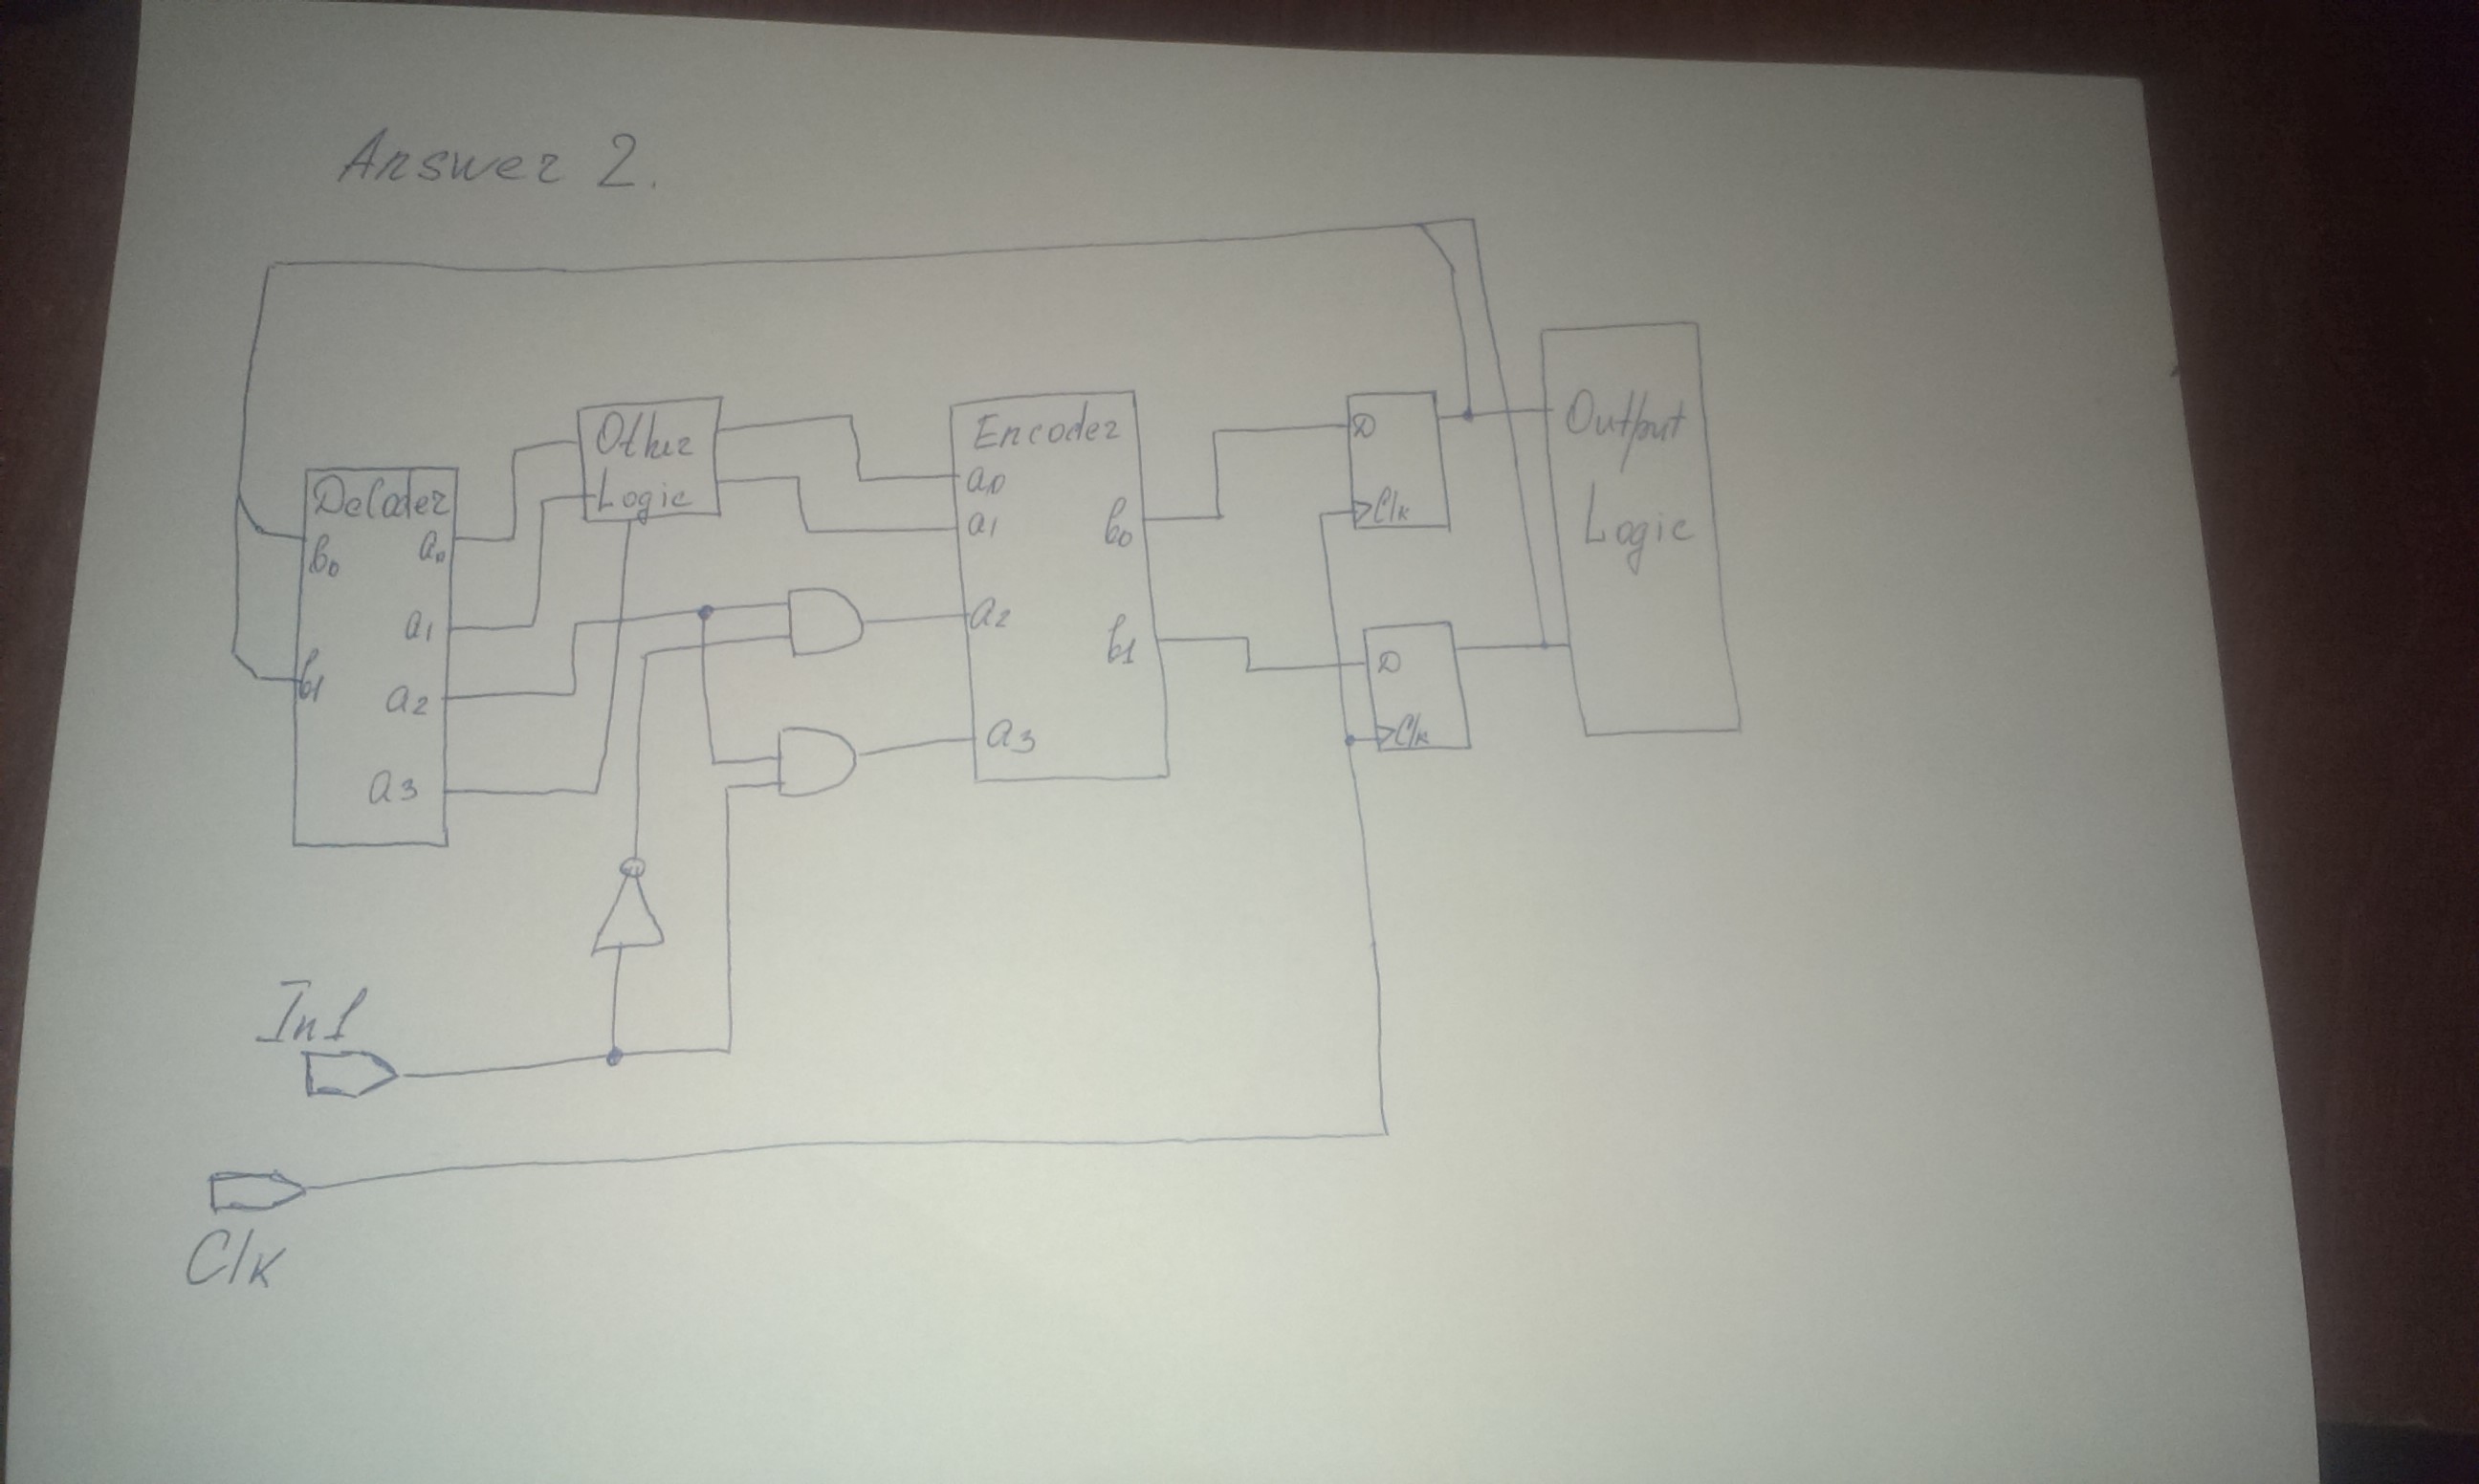 Answer 2.
Decoder
b0
b1
a0
a1
a2
a3
Other
Logic
Encoder
a0
a1
a2
a3
b0
b1
D
Clk
D
Clk
Output
Logic
In1
Clk